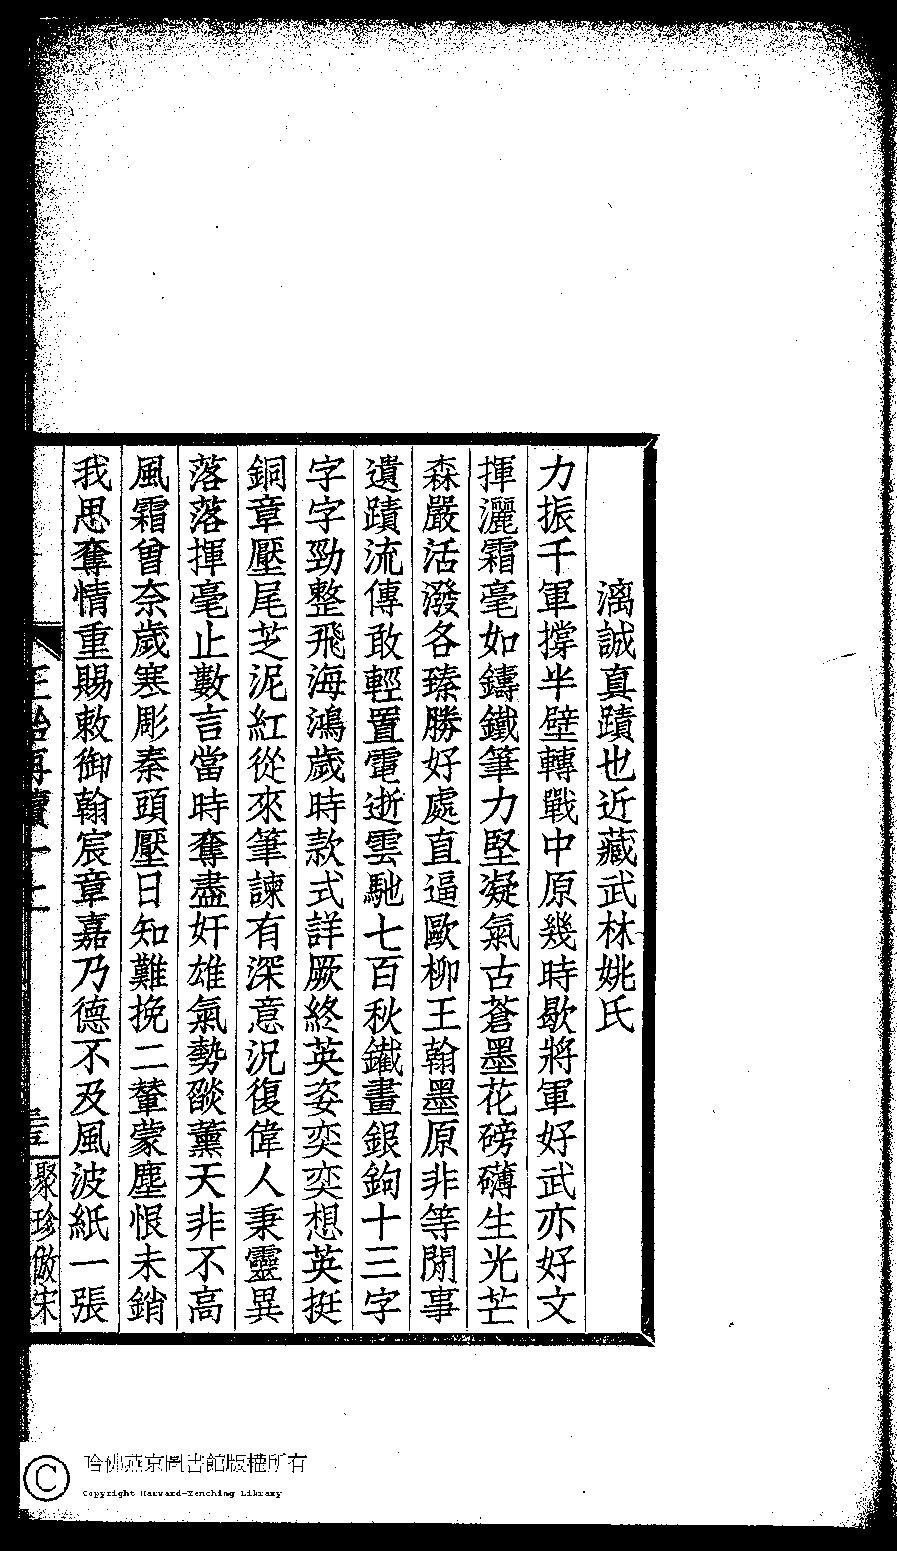 漓誠真蹟也近藏武林姚氏
力振千軍撐半壁轉戰中原幾時歇將軍好武亦好文
揮灑霜毫如鑄鐵筆力堅凝氣古蒼墨花磅礴生光芒
森嚴活潑各臻勝好處直逼歐柳王翰墨原非等閒事
遺蹟流傳敢輕置電逝雲馳七百秋鐵畫銀鉤十三字
字字勁整飛海鴻歲時款式詳厥終英姿奕奕想英挺
銅章壓尾芝泥紅從來筆諫有深意況復偉人秉靈異
落落揮毫止數言當時奪盡奸雄氣勢燄薰天非不高
風霜曾奈歲寒彫秦頭壓日知難挽二輦蒙塵恨未銷
我思奪情重賜敕御翰宸章嘉乃德不及風波紙一張
聚珍倣宋
哈佛燕京圖書館版權所有
Copyright Harvard-Yenching Library